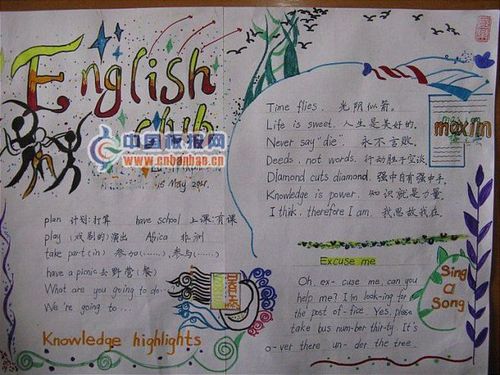 English
club
中国板报网
www.cnbanbao.cn
plan 计划:打算 have school 上课:有课
play (戏剧的)演出 Africa 非洲
take part(in) 参加(......),参与(......)
have a picnic 去野营(餐)
What are you going to do...
We're going to...
Knowledge highlights
Time flies. 光阴似箭。
Life is sweet. 人生是美好的。
Never say "die". 永不言败。
Deeds, not words. 行动胜于空谈。
Diamond cuts diamond. 强中自有强中手。
Knowledge is power. 知识就是力量。
I think, therefore I am. 我思故我在。
maxim
Excuse me
Oh, ex- cuse me, can you
help me? I'm look-ing for
the post of-fice. Yes, please
take bus num-ber thir-ty. It's
o-ver there un-der the tree.
Sing
a
Song